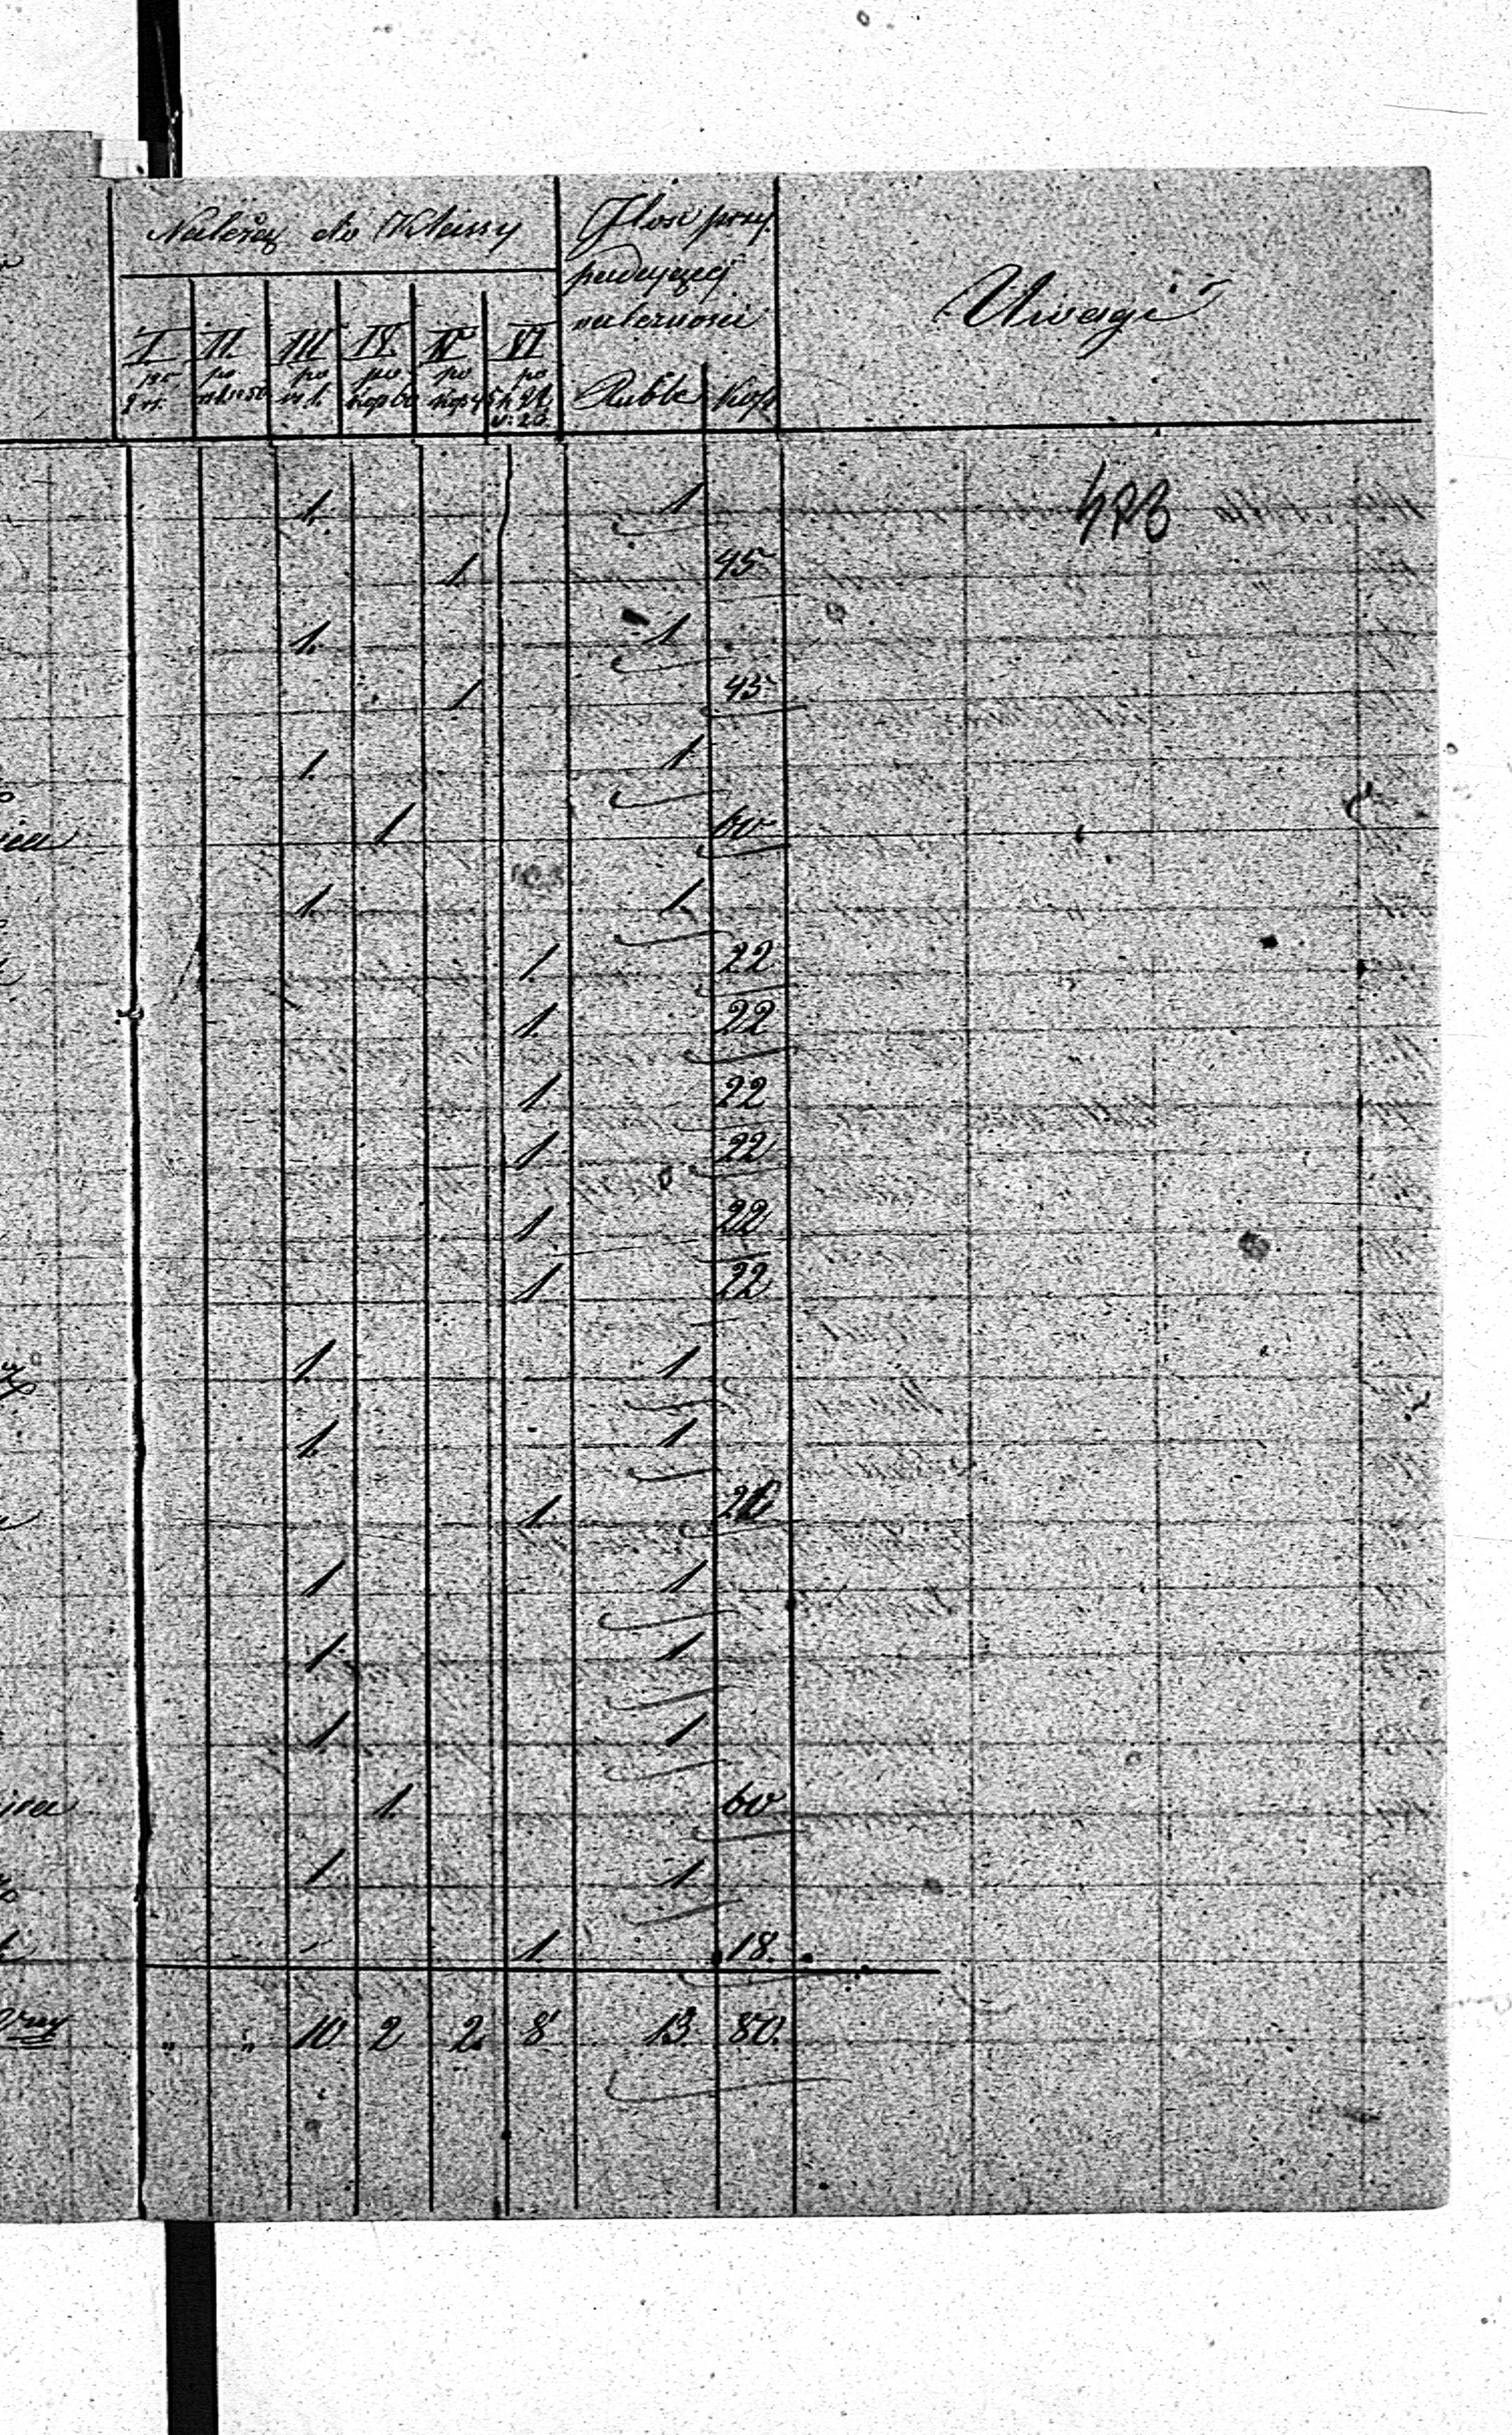 Należą do Klassy
Ilosć przy
padającej
należnosci
Uwagi
I II. III IV. V VI
po po po po po
rs 1. kop 60
Rubli Kop
1. 1
1 45
1. 1
1 45
1. 1
1 60
1. 1
1 22
1 22
1 22
1 22
1 22
1 22
1. 1
1. 1
1. 20
1 1
1 1
1 1
1. 60
1 1
1. 18.
" " 10 2 2. 8 13 80.